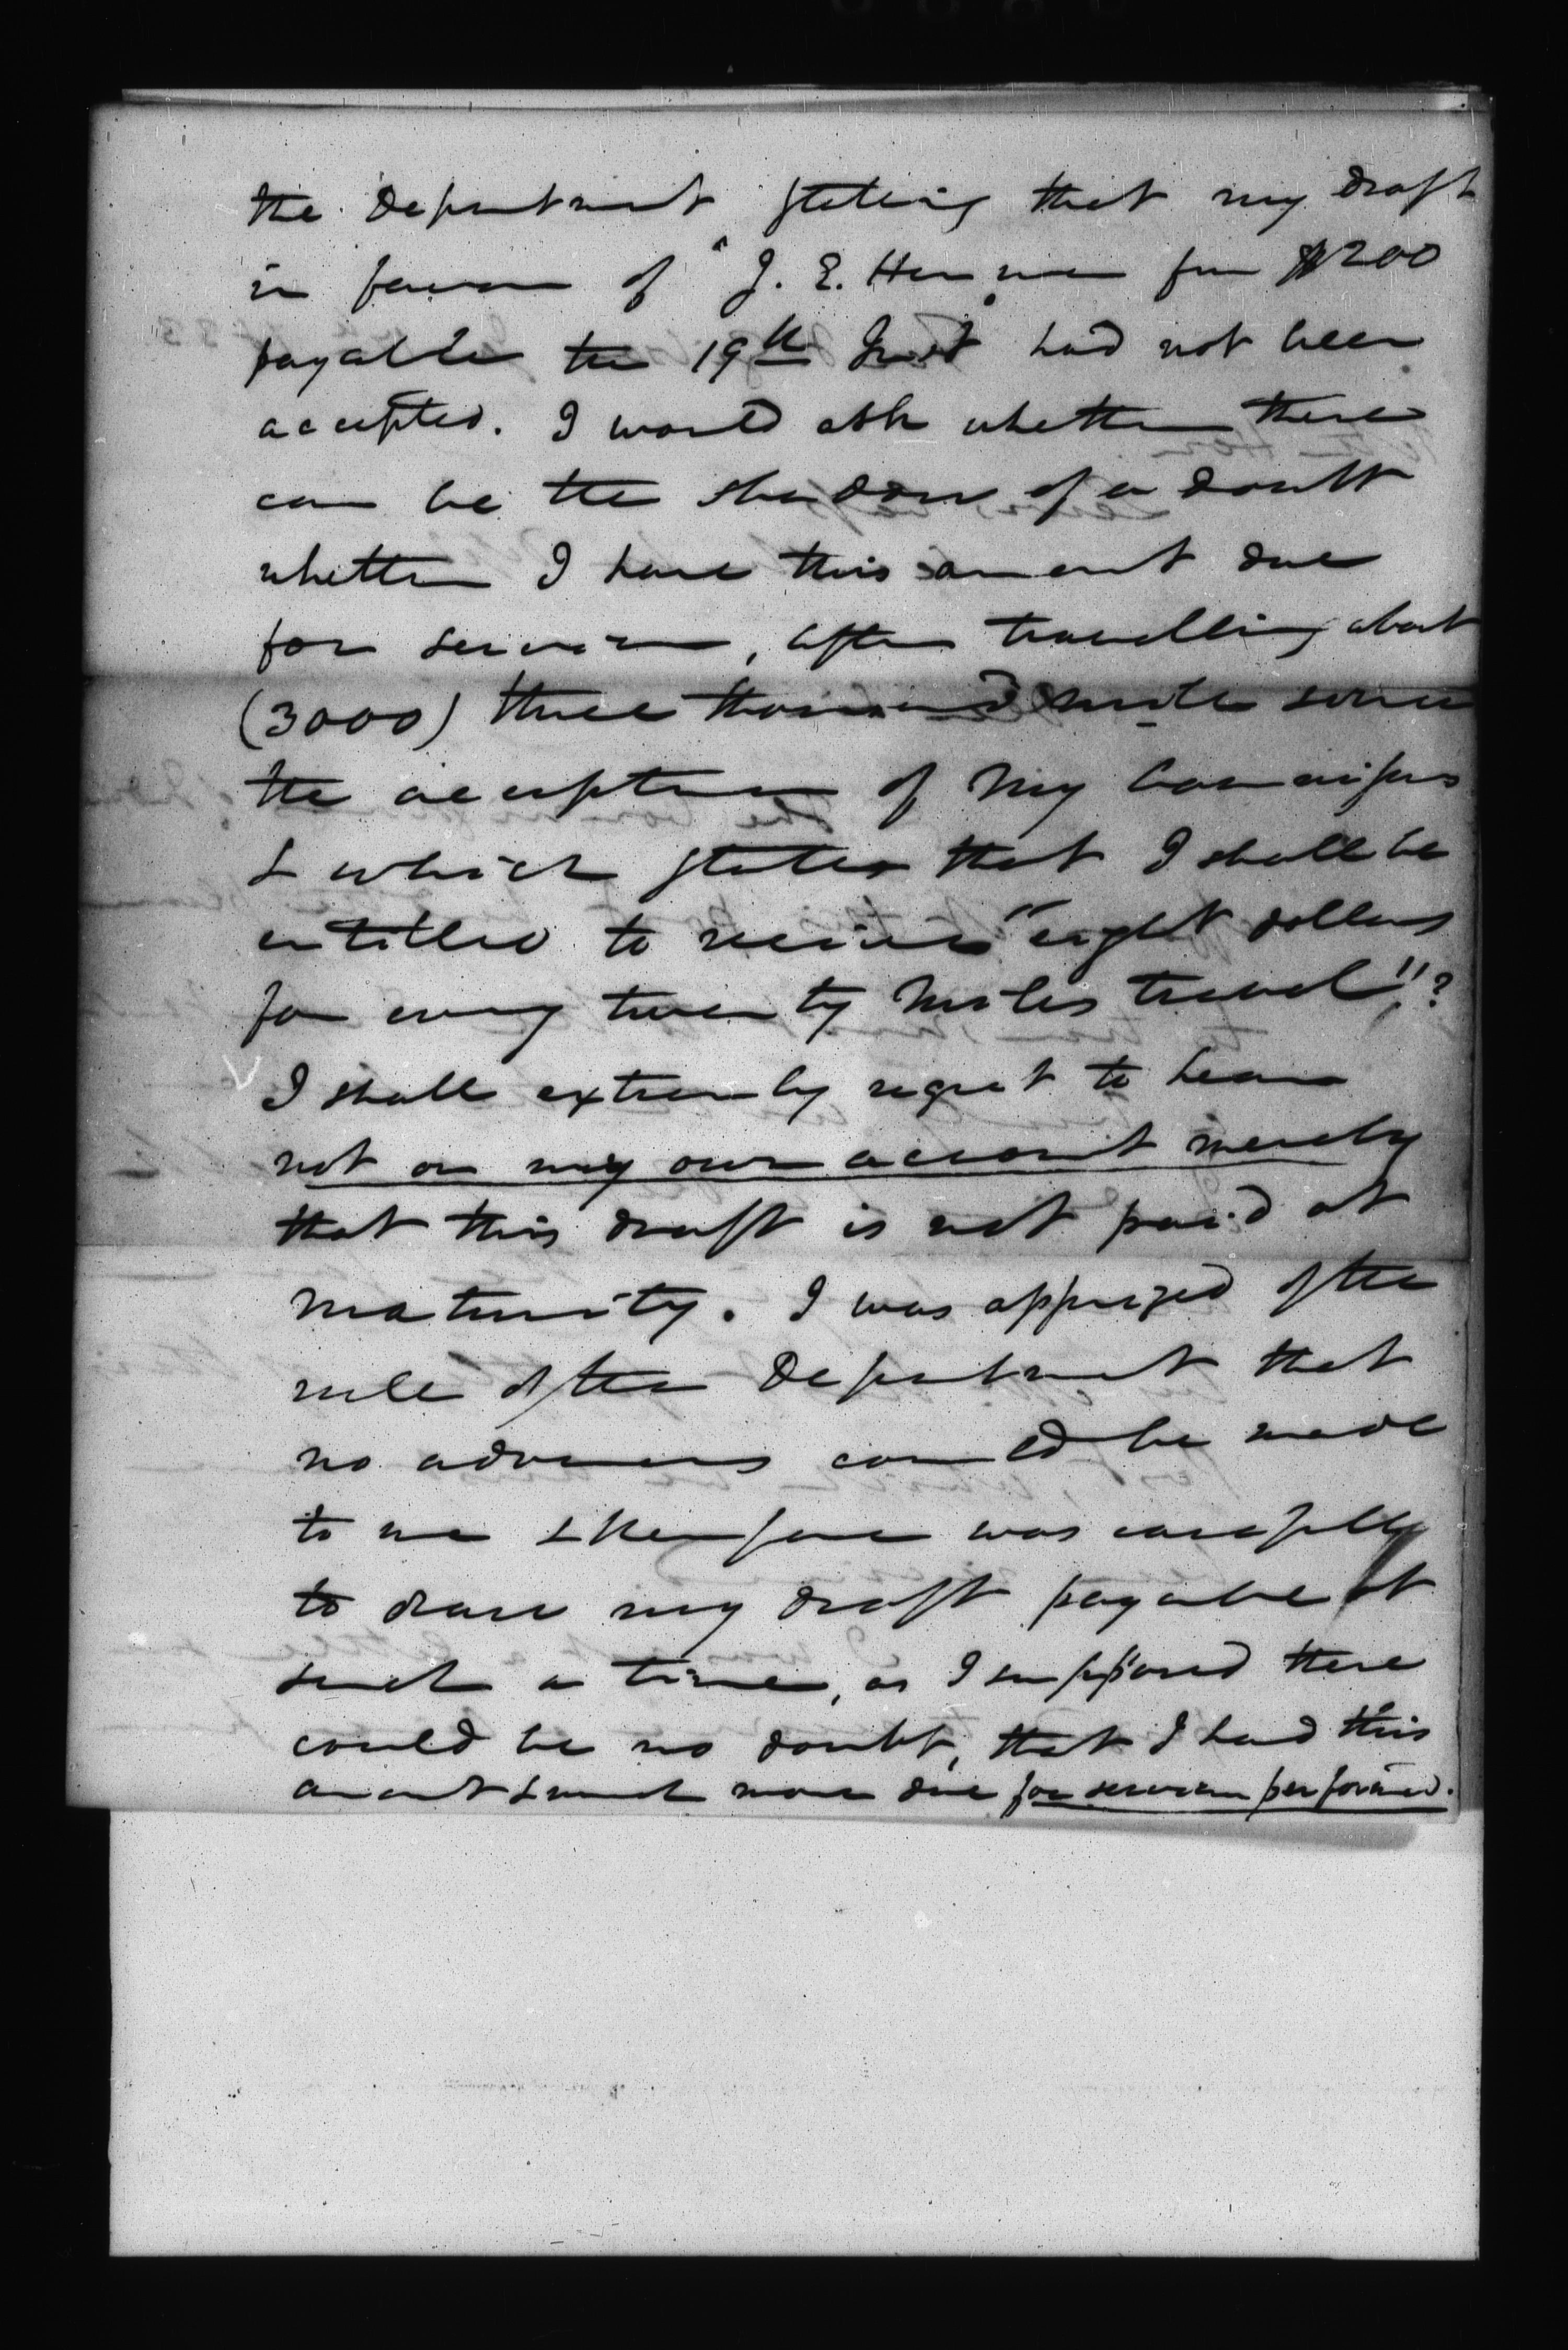 the Department stating that my draft
in favor of J. E. Herman for $200
payable the 19th Inst had not been
accepted. I would ask whether there
can be the shadow of a doubt
whether I have this amount due
for services, after travelling about
(3000) three thousand miles since
the acceptance of my Commission
& which states that I shall be
entitled to receive "eight dollars
for every twenty miles travel"?
I shall extremely regret to hear
not on my own account merely
that this draft is not paid at
maturity. I was apprized of the
rule of the Department that
no advances could be made
to me & therefore was careful
to draw my draft payable at
such a time, as I supposed there
could be no doubt, that I had this
amount & much more due for services performed.